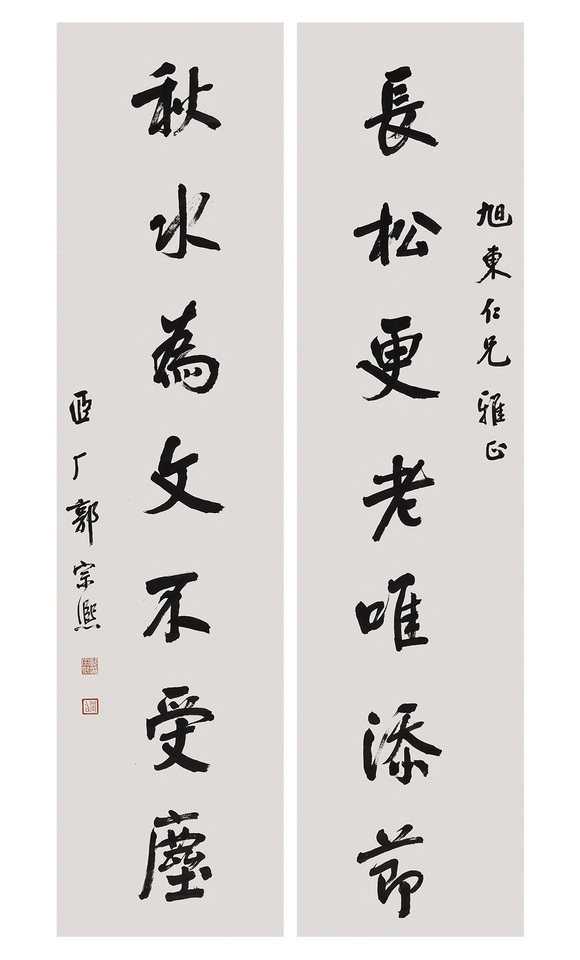 旭東仁兄雅正
長松更老唯添節
秋水為文不受塵
匝厂郭宗熙